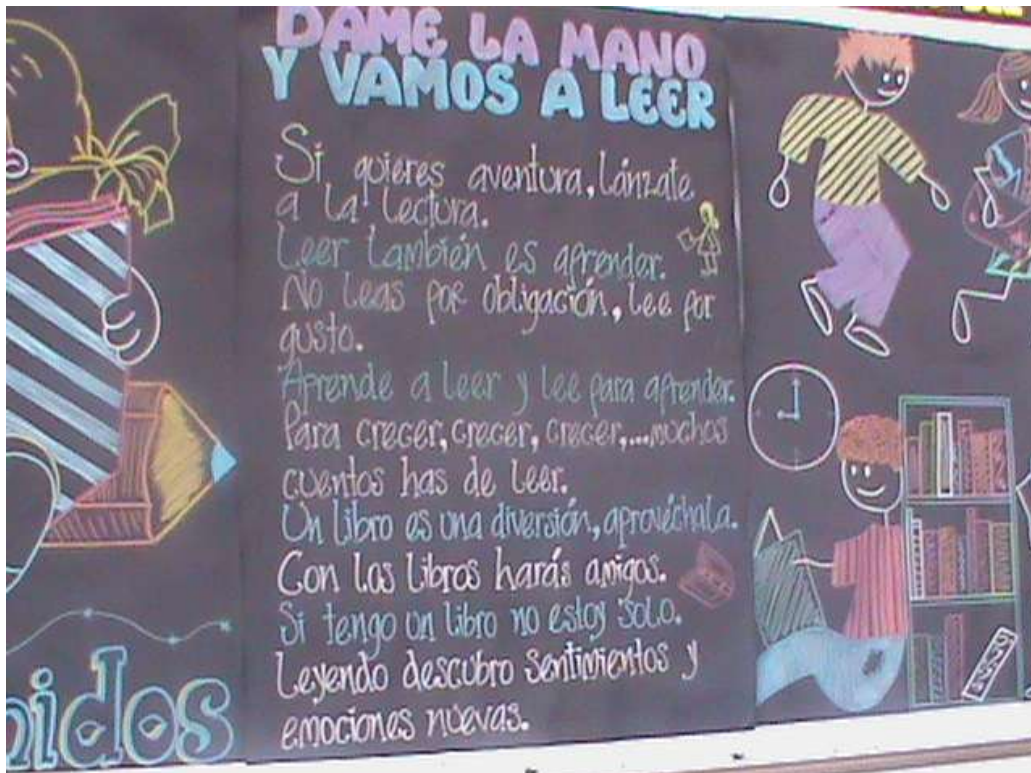 DAME LA MANO
Y VAMOS A LEER
Si quieres aventura, Lánzate
a la Lectura.
Leer también es aprender.
No Leas por obligación, lee por
gusto.
Aprende a Leer y Lee para aprender.
Para crecer, crecer, crecer,...muchos
cuentos has de leer.
Un libro es una diversión, aprovéchala.
Con los Libros harás amigos.
Si tengo un libro no estoy solo.
Leyendo descubro sentimientos y
emociones nuevas.
nidos